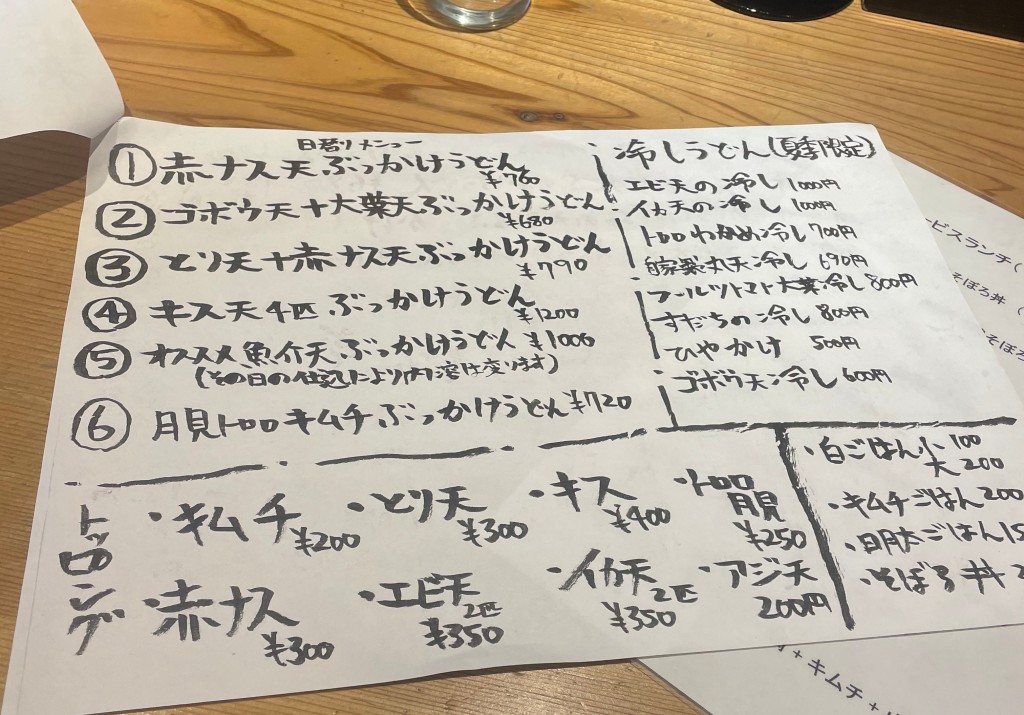 日替りメニュー
① 赤ナス天ぶっかけうどん
¥760
② ゴボウ天+大葉天ぶっかけうどん
¥680
③ とり天+赤ナス天ぶっかけうどん
¥790
④ キス天4匹ぶっかけうどん
¥1200
⑤ オススメ魚介天ぶっかけうどん ¥1000
(その日の仕込により内容は変ります)
⑥ 月見トロロキムチぶっかけうどん ¥720
冷しうどん(夏季限定)
エビ天の冷し 1000円
イカ天の冷し 1000円
トロロわかめ冷し 700円
自家製丸天冷し 690円
フルーツトマト大葉冷し 800円
すだちの冷し 800円
ひやかけ 500円
ゴボウ天冷し 600円
トッピング
・キムチ
¥200
・とり天
¥300
・キス
¥400
・トロロ
月見
¥250
・赤ナス
¥300
・エビ天
2匹
¥350
・イカ天
2匹
¥350
・アジ天
200円
・白ごはん小 100
大 200
・キムチごはん 200
・明太ごはん
・そぼろ丼
ビスランチ(
そぼろ丼
そぼろ
+キムチ+